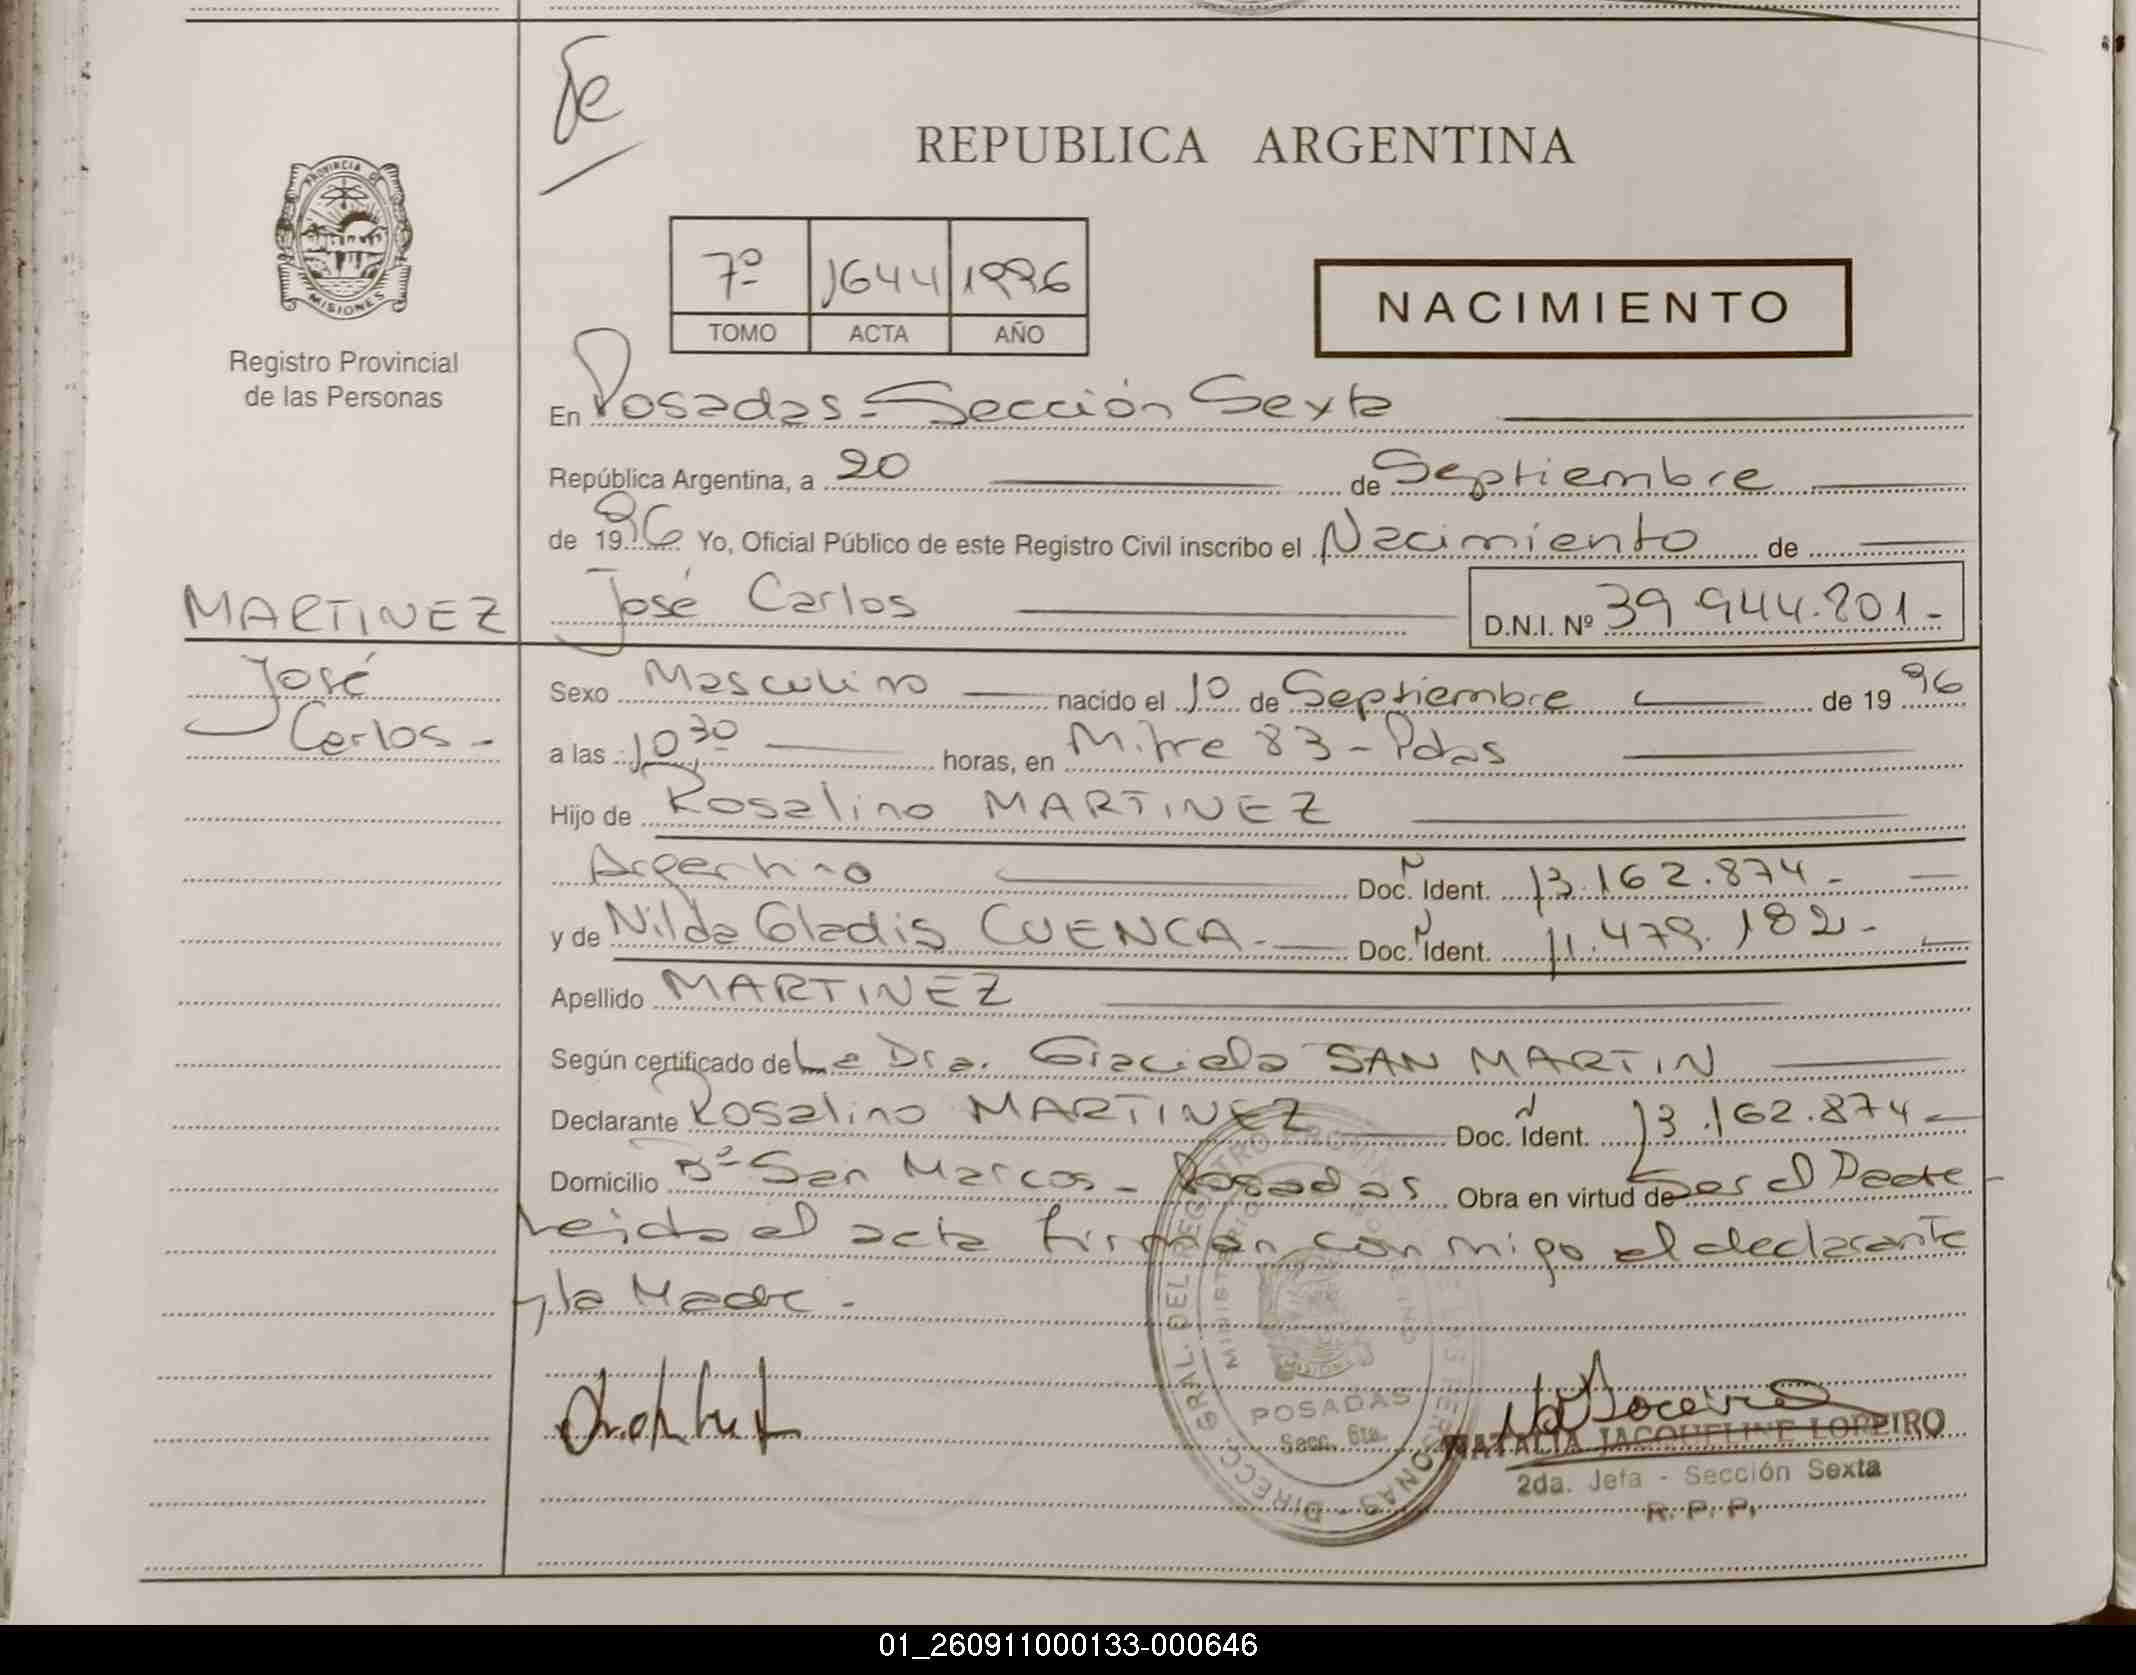 REPUBLICA ARGENTINA
PROVINCIA DE
MISIONES
Registro Provincial
de las Personas
7º 1644 1996
TOMO ACTA AÑO
NACIMIENTO
En Posadas - Sección Sexta
República Argentina, a 20 de Septiembre
de 1996 Yo, Oficial Público de este Registro Civil inscribo el Nacimiento de
MARTINEZ José Carlos D.N.I. Nº 39.944.201.-
José
Carlos -
Sexo Masculino nacido el 10 de Septiembre de 1996
a las 10 30 horas, en Mitre 83 - Pdas
Hijo de Rosalino MARTINEZ
Argentino Doc. N Ident. 13.162.874 -
y de Nilda Gladis CUENCA - Doc. N Ident. 11.479.182 -
Apellido MARTINEZ
Según certificado de La Dra. Graciela SAN MARTIN
Declarante Rosalino MARTINEZ Doc. N Ident. 13.162.874 -
Domicilio Bº San Marcos - Posadas Obra en virtud de Ser el Padre -
Leida el acta firman con migo el declarante
y la Madre -
DIRECC. GRAL. DEL REGISTRO PERSONAS
POSADAS
Secc. 6ta.
NATALIA JACQUELINE LOREIRO
2da. Jefa - Sección Sexta
R. P. P.
01_260911000133-000646